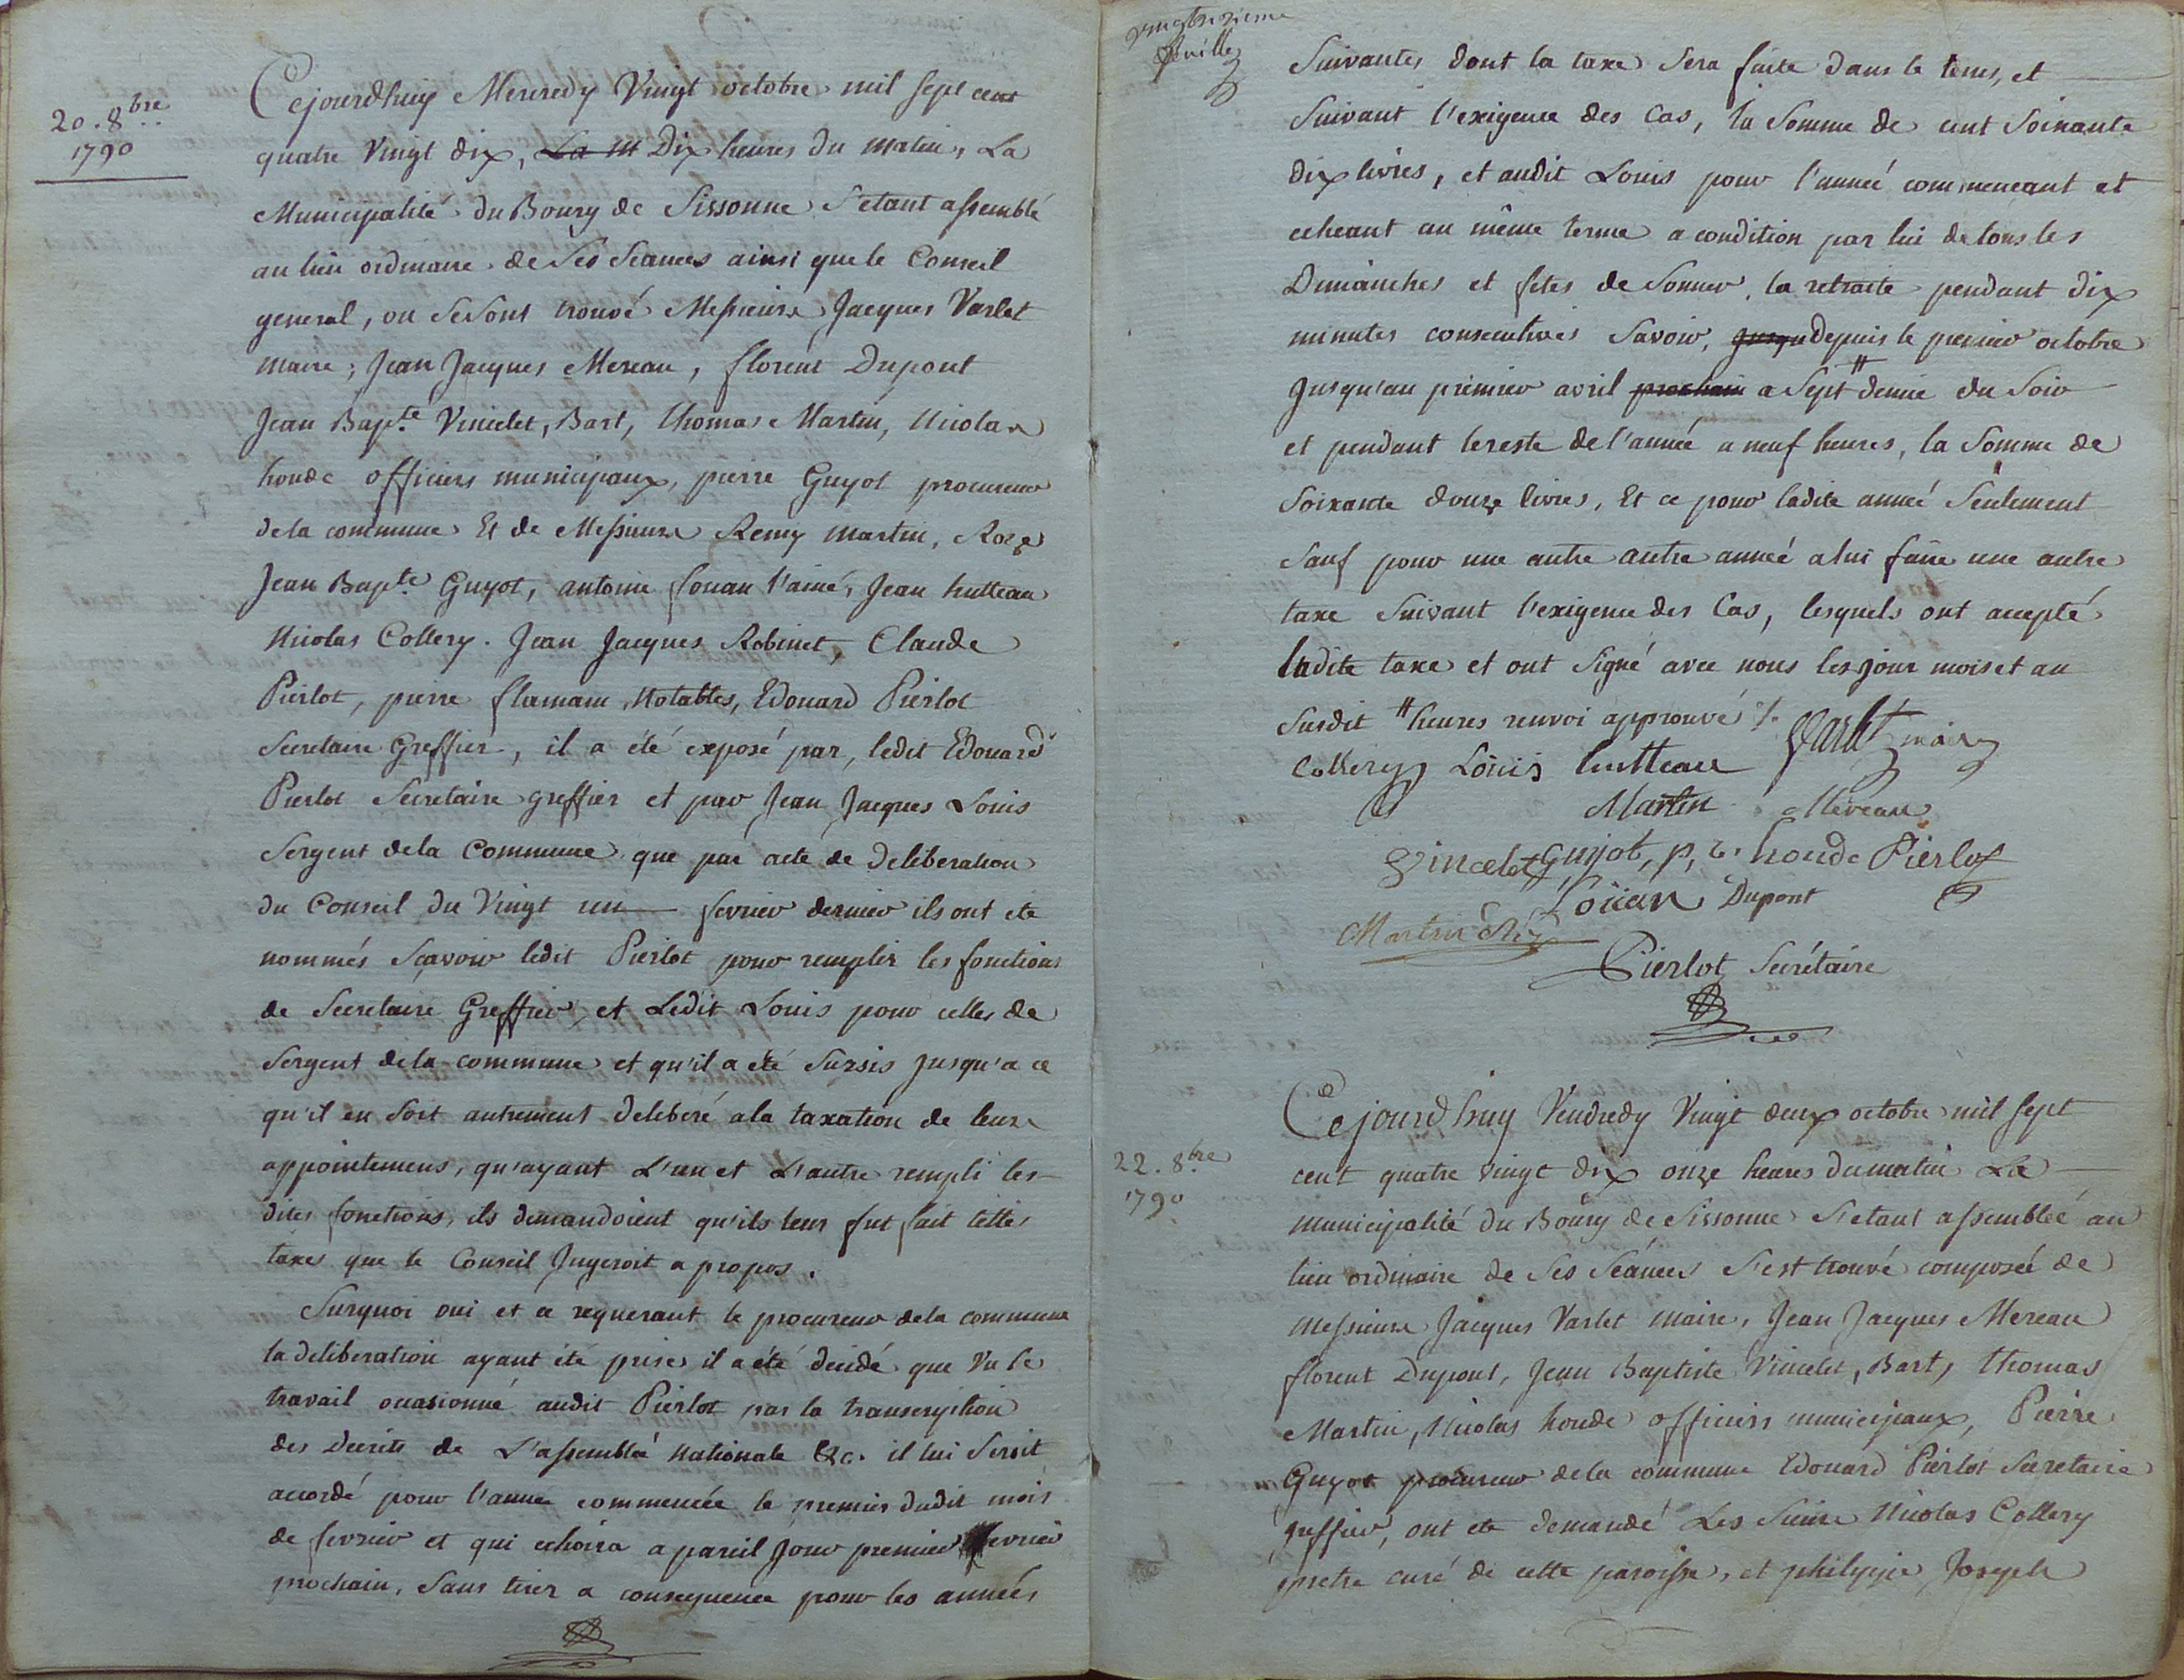 20. 8bre
1790
Cejourdhuy Mercredy Vingt octobre mil sept cent
quatre Vingt dix, La M Dix heures du matin, La
Municipalité du Bourg de Sissonne s'etant assemblé
au lieu ordinaire de ses seances ainsi que le Conseil
general, ou se sont trouvé Messieurs Jacques Varlet
maire, Jean Jacques Mereau, florent Dupont
Jean Bapte. Vincelet, Bart, thomas Martin, Nicolas
houde officiers municipaux, pierre Guyot procureur
de la commune Et de Messieurs Remy Martin, Roze
Jean Bapte. Guyot, antoine fouan l'ainé, Jean hutteau
Nicolas Collery. Jean Jacques Robinet, Claude
Pierlot, pierre flamain Notables, Edouard Pierlot
Secretaire Greffier, il a été exposé par, ledit Edouard
Pierlot Secretaire greffier et par Jean Jacques Louis
Sergent de la Commune que par acte de deliberation
du Conseil du Vingt un fevrier dernier ils ont ete
nommés Scavoir ledit Pierlot pour remplir les fonctions
de Secretaire Greffier et Ledit Louis pour celles de
Sergent de la commune et qu'il a été Sursis jusqu'a ce
qu'il en Soit autrement deliberé a la taxation de leurs
appointemens, qu'ayant L'un et L'autre rempli les
dites fonctions, ils demandoient qu'ils leur fut fait telles
taxes que le Conseil Jugeroit a propos.
Surquoi oui et ce requerant le procureur de la commune
la deliberation ayant été prise il a été decidé que Vu le
travail ocasionné audit Pierlot par la transcription
des Decrets de L'assemblée Nationale &c. il lui Seroit
accordé pour l'année commencée le premier dudit mois
de fevrier et qui echoira a pareil Jour premier fevrier
prochain, Sans tirer a consequence pour les années
feuille
Suivantes dont la taxe Sera faite dans le tems, et
Suivant l'exigence des Cas, la Somme de cent Soixante
dix livres, et audit Louis pour l'année commencant et
echeant au même terme a condition par lui de tous les
Dimanches et fetes de Sonner la retraite pendant dix
minutes consecutives Savoir, jusqu depuis le premier octobre
Jusqu'au premier avril prochain a Sept # demie du Soir
et pendant le reste de l'année a neuf heures, la Somme de
Soixante douze livres, Et ce pour ladite année Seulement
Sauf pour une autre autre année a lui faire une autre
taxe Suivant l'exigence des Cas, lesquels ont accepté
ladite taxe et ont Signé avec nous les jour mois et an
Susdit # heures renvoi approuvé /. Varlet maire
Collery Louis hutteau
Martin Mereau
Vincelet Guyot, p, r. houde Pierlot
foüan Dupont
Martin
Pierlot Secrétaire
22. 8bre
1790
Cejourdhuy Vendredy Vingt deux octobre mil sept
cent quatre vingt dix onze heures du matin La
municipalité du Bourg de Sissonne S'etant assemblée au
lieu ordinaire de Ses Séances S'est trouvé composée de
Messieurs Jacques Varlet Maire, Jean Jacques Mereau
florent Dupont, Jean Baptiste Vincelet, Bart, thomas
Martin, Nicolas houde officiers municipaux, Pierre
Guyot procureur de la commune Edouard Pierlot Secretaire
greffier, ont ete demandé Les Sieurs Nicolas Collery
pretre curé de cette paroisse, et philippe Joseph